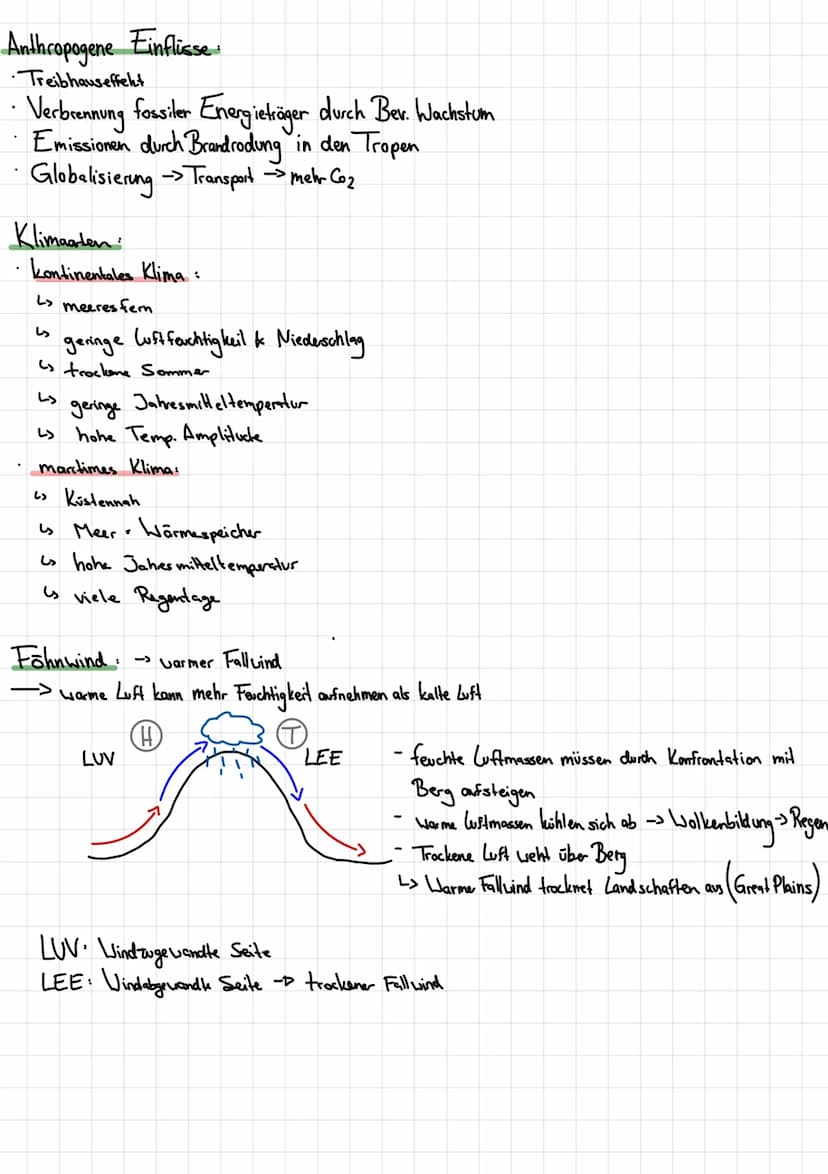 Anthropogene Einflüsse:
· Treibhauseffekt
· Verbrennung fossiler Energieträger durch Bev. Wachstum
· Emissionen durch Brandrodung in den Tropen
· Globalisierung -> Transport -> mehr Co2
Klimaarten:
· kontinentales Klima:
↳ meeresfern
↳ geringe Luftfeuchtigkeit & Niederschlag
↳ trockene Sommer
↳ geringe Jahresmitteltemperatur
↳ hohe Temp. Amplitude
· maritimes Klima:
↳ Küstennah
↳ Meer = Wärmespeicher
↳ hohe Jahesmitteltemperatur
↳ viele Regentage
Föhnwind: -> warmer Fallwind
-> warme Luft kann mehr Feuchtigkeit aufnehmen als kalte Luft
H T
LUV LEE
- feuchte Luftmassen müssen durch Konfrontation mit
Berg aufsteigen
- warme Luftmassen kühlen sich ab -> Wolkenbildung -> Regen
- Trockene Luft weht über Berg
↳ Warme Fallwind trocknet Landschaften aus (Great Plains)
LUV: Windzugewandte Seite
LEE: Windabgewandte Seite -> trockener Fallwind